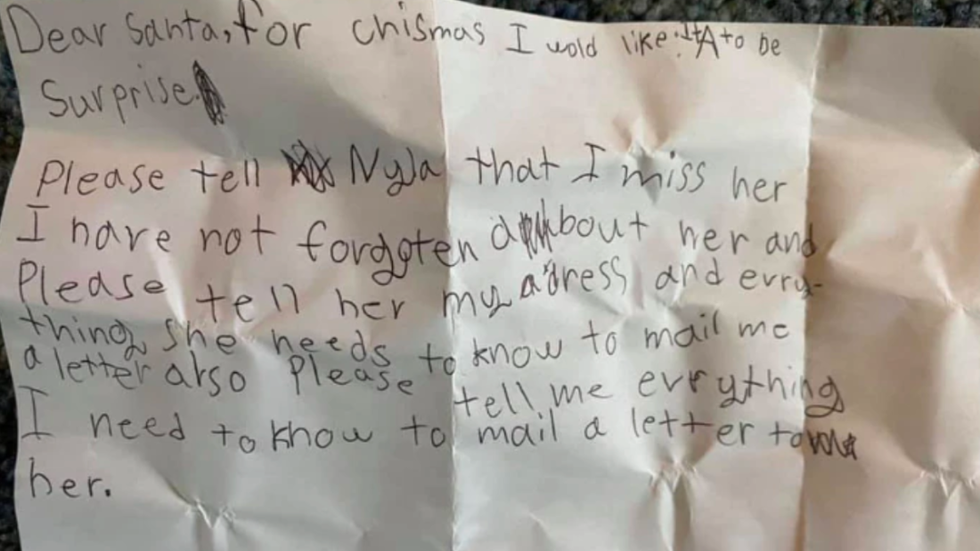 Dear Santa, for chismas I wold like it to be
Surprise
Please tell Nyla that I miss her
I have not forggten about her and
Please tell her my adress and evry-
thing she needs to know to mail me
a letter also Please tell me evrything
I need to know to mail a letter to
her.